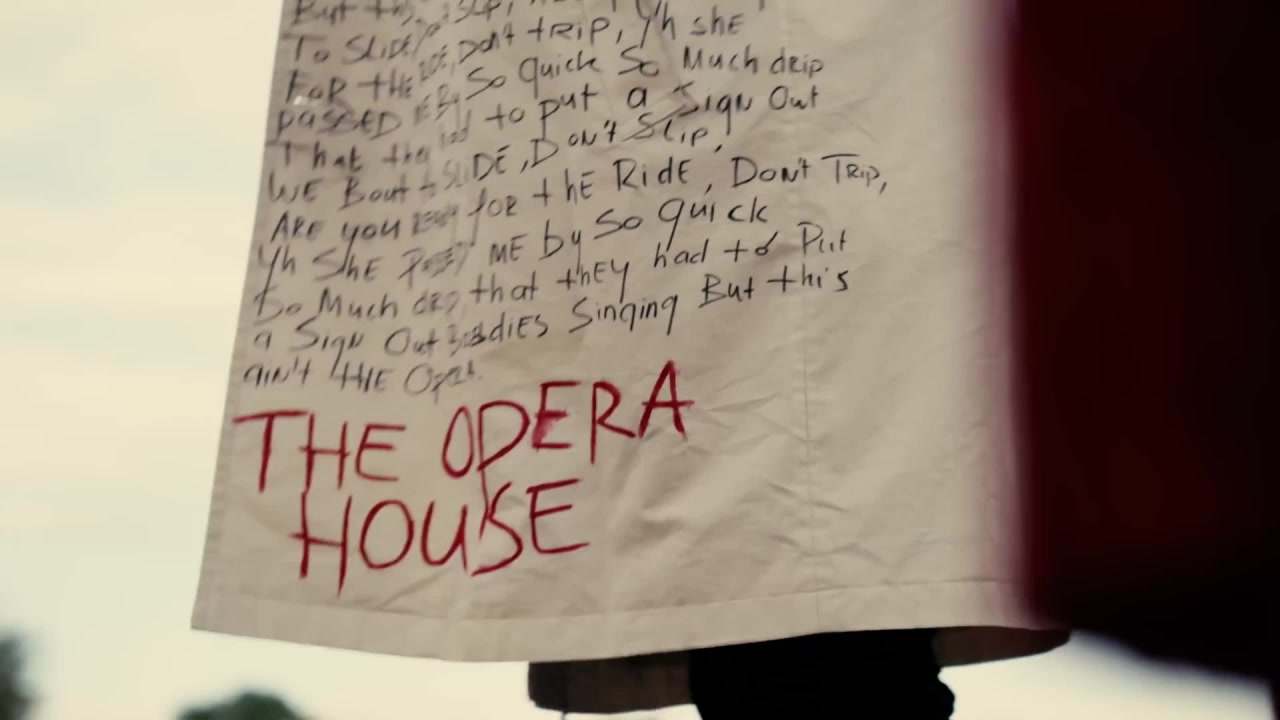 But this
To SLIDE, DON't tRIP, Yh sHE
FOR tHE RIDE, So Quick So Much drip
PASSED ME By to put a Sign Out
That they had
WE Bout to SLIDE, DON't Slip,
ARE you READY for the RidE, Don't Trip,
Yh SHE PASSED ME by So quick
So Much drip that thEy had to Put
a Sign Out BodiEs Singing But this
ain't tHE Opera
THE OPERA
HOUSE